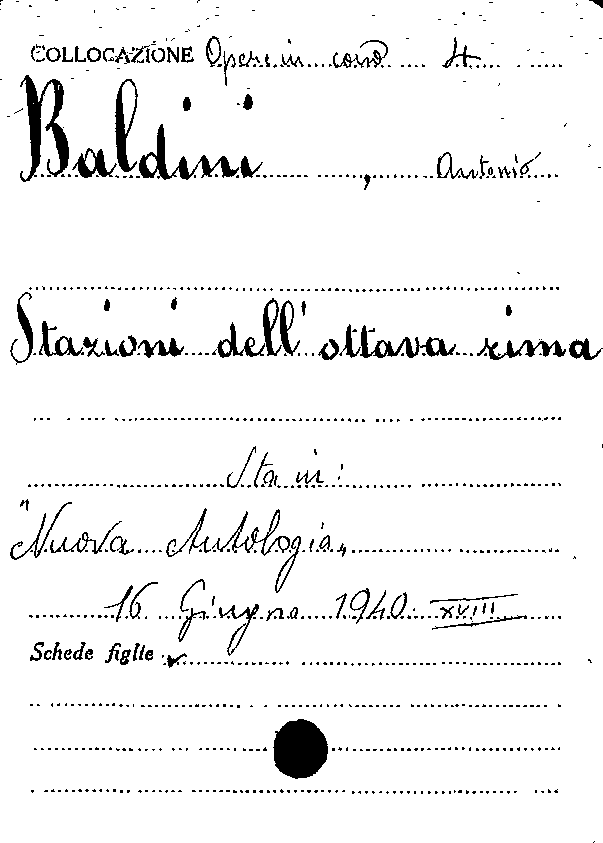 COLLOCAZIONE Opere in corso 4
Baldini, Antonio
Stazioni dell'ottava rima
Sta in:
"Nuova Antologia„
16 Giugno 1940. XVIII
Schede figlie